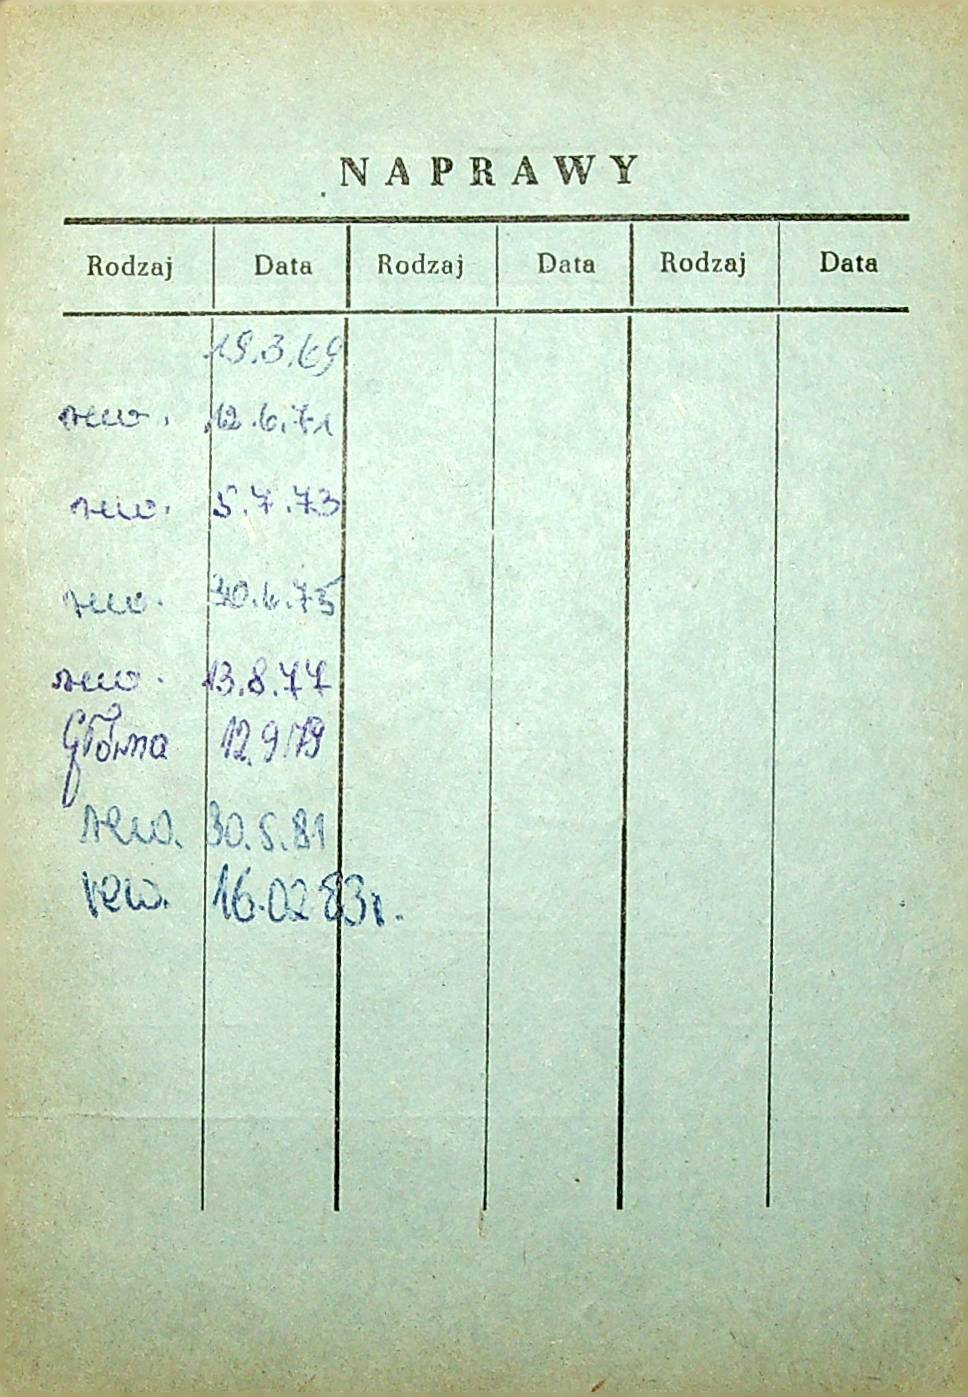 NAPRAWY
Rodzaj Data Rodzaj Data Rodzaj Data
19.3.69
rew. 12.6.71
rew. 5.7.73
rew. 30.6.75
rew. 13.8.77
Główna 12.9.79
rew. 30.5.81
rew. 16.02.83r.